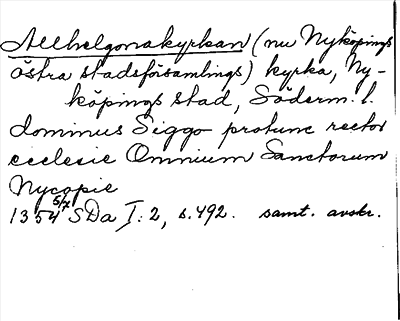 Allhelgonakyrkan (nu Nyköpings
östra stadsförsamlings) kyrka, Ny-
köpings stad, Söderm. l.
dominus Siggo protunc rector
ecclesie Omnium Sanctorum
Nycopie
1354 5/7 SDa I:2, s.492. samt. avskr.